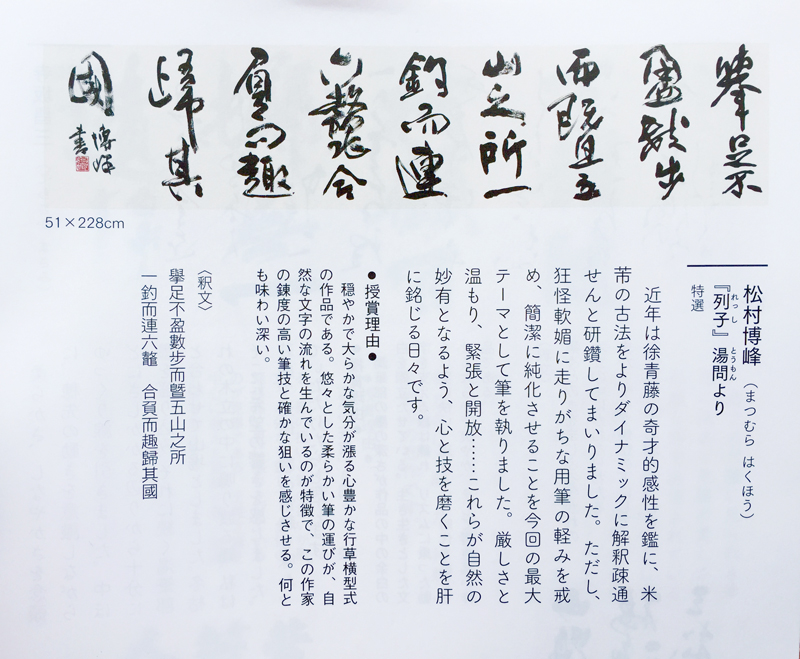 擧足不
盈數步
而曁五
山之所一
釣而連
六鼇合
負而趣
歸其
國
博峰書
51×228cm
松村博峰（まつむら はくほう）
『列子』湯問より
れっし とうもん
特選
近年は徐青藤の奇才的感性を鑑に、米
芾の古法をよりダイナミックに解釈疎通
せんと研鑽してまいりました。ただし、
狂怪軟媚に走りがちな用筆の軽みを戒
め、簡潔に純化させることを今回の最大
テーマとして筆を執りました。厳しさと
温もり、緊張と開放……これらが自然の
妙有となるよう、心と技を磨くことを肝
に銘じる日々です。
●授賞理由●
穏やかで大らかな気分が漲る心豊かな行草横型式
の作品である。悠々とした柔らかい筆の運びが、自
然な文字の流れを生んでいるのが特徴で、この作家
の錬度の高い筆技と確かな狙いを感じさせる。何と
も味わい深い。
〈釈文〉
擧足不盈數步而曁五山之所
一釣而連六鼇　合貟而趣歸其國